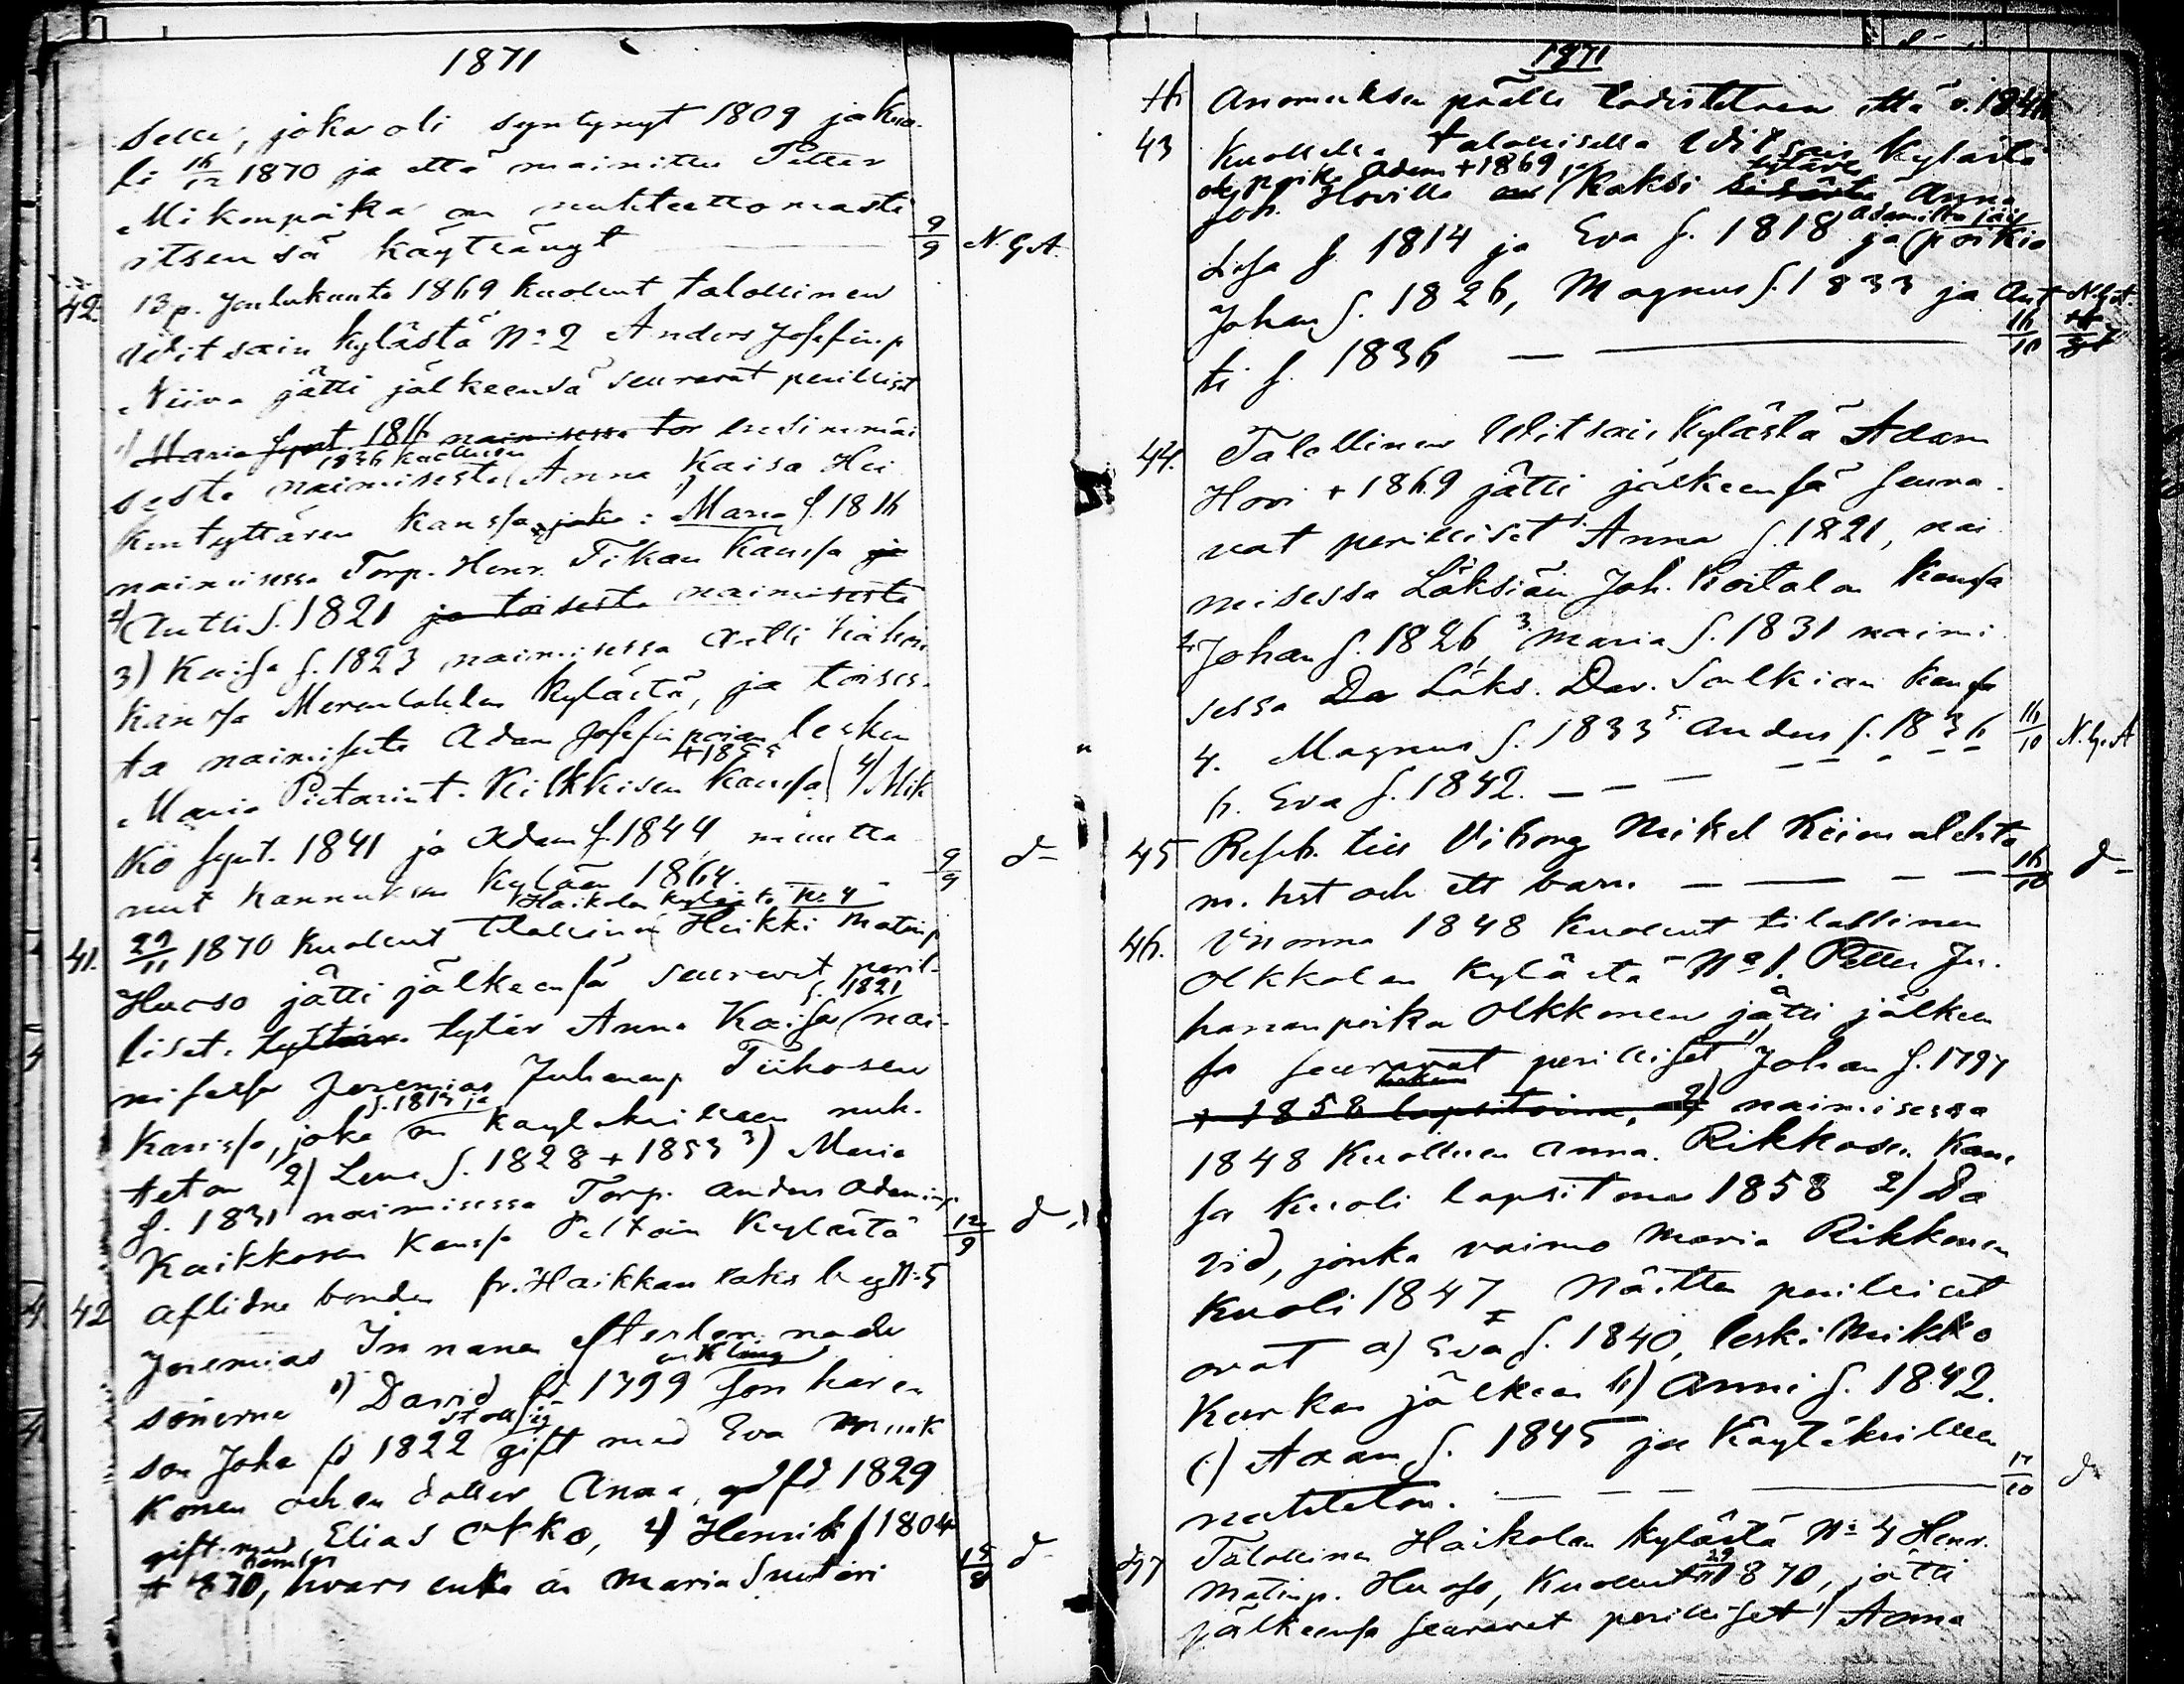 1871
selle, joka oli syntynyt 1809 ja kuo-
li 16/12 1870 ja että mainittu Petter
Mikonpoika on nuhteettomasti
itsensä käyttänyt 9/9 N. G. A.
42. 13 p. Joulukuuta 1869 kuollut talollinen
Uditsain kylästä No 2 Anders Josefinp
Niiva jätti jälkeensä seuravat perilliset
1) Maria synt 1816 naimisessa tor ensimmäi
sestä naimisesta 1836 kuolleen Anna Kaisa Hei
kintyttären kanssa joka: Maria f. 1816
naimisessa Torp. Henr. Tikan kanssa ja
2) Antti f. 1821 ja toisesta naimisesta
3) Kaisa f. 1823 naimisessa Antti
kanssa Merenlahden kylästä, ja toises-
ta naimisesta Adam Josefinpoian lesken
Maria Pietarint. Kilkkisen kanssa +1855 4) Mik
ko synt. 1841 ja Adam f. 1844 muutta
nut Kannuksen kylään 1864. 9/9 d-
Haikolan kylästä No 4
41. 29/11 1870 kuollut tilallinen Heikki Matinp
Huoso jätti jälkeensä seuravat peril-
liset. tyttären tytär Anna Kaisa f. 1821 nai-
misessa Jeremias Juhananp Tiihosen
kanssa, joka f. 1813 ja on käytökselleen nuh-
teeton 2) Lena f. 1828 + 1853 3) Maria
f. 1831 naimisessa Torp. Anders Adaminp
Kaikkosen kanssa Peltoin kylästä 12/9 d
42 Aflidne bonden fr. Haikkan laks by No 5
Jeremias Innanen efterlemnade
sönerne 1) David fd 1799 en K läng son har en
son Joha fd 1822 gift med Eva Munk
konen och en dotter Anna, fd 1829
gift med Elias Okko, 2) Henrik f 1804
+ 1870, hvars enka är Maria Suutari 15/8 d-
1871
Anomuksen päälle todistetaan että v. 1846
43 Kuolleella talollisella Uditsain kylästä
olej poika Adam +1869 ja tytärtä
Joh. Hovilla kaksi sisärtä Anna
Lisa f 1814 ja Eva f. 1818 ja Adamilta jäi poikia
Johan f. 1826, Magnus f. 1833 ja Ant N. G. A.
ti f. 1836 16/10
44. Talollinen Uditsain kylästä Adam
Hovi + 1869 jätti jälkeensä seura-
vat perilliset 1. Anna f. 1821, nai
misessa Läksiän Joh. Koitalan kanssa
2. Johan f. 1826, 3. Maria f. 1831 naimi
sessa Da Läks. Dav. Sulkian kanssa
4. Magnus f. 1833 5. Anders f. 1836 16/10 N. G. A
6. Eva f. 1842.
45 Reseb. till Viborg Mikel Kiianlehto
m. hst och ett barn. 16/10 d-
46. Vuonna 1848 kuollut tilallinen
Olkkolan kylästä No 1. Petter Ju-
hananpoika Olkkonen jätti jälkeen
sä seuravat perilliset 1) Johan f. 1797
+ 1858 lapsitoinna, 2) naimisessa
1848 kuolleen Anna Rikkosen kans
sa kuoli lapsitonna 1858 2) Da
vid, jonka vaimo Maria Rikkonen
kuoli 1847 Näitten perilliset
ovat a) Eva f. 1840, leski Mikko
Kurkan jälkeen b) Anni f. 1842.
c) Adam f. 1845 ja käytökselleen
nuhteeton. 17/10 d-
47 Talollinen Haikolan kylästä No 4 Henr.
Matinp. Huoso, kuollut 29/11 1870, jätti
jälkeensä seuravat perilliset 1) Anna